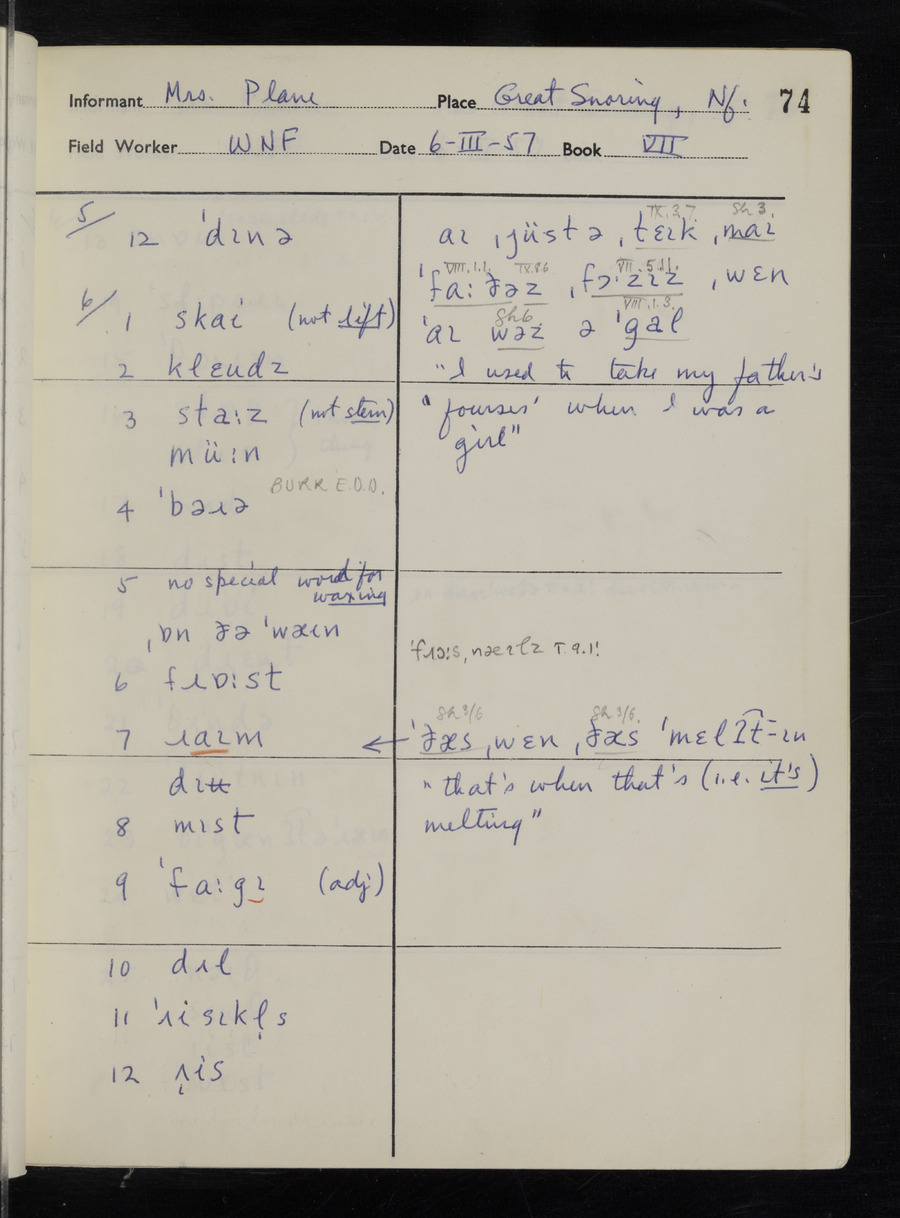 Informant Mrs. Plane Place Great Snoring, Nf. 74
Field Worker WNF Date 6-III-57 Book VII
5/
12 ˈdɪnə
6/
1 skai (not lift)
2 klɛudz
3 sta:z (not stern)
mü:n
4 ˈbəɹə BURR E.D.D.
5 no special word for
waxing
ˌɒn ðə ˈwæɪn
6 fɹɒ:st
7 ɹaɪm
dɪʉ
8 mɪst
9 ˈfa:gɪ (adj)
10 dɹɪ
11 ˈɹisɪkl̩s
12 ɹis
IX.3.7. Sh 3.
aɪ ˌjüstə ˌtɛɪk ˌmaɪ
VIII.1.1. IX.8.6 VII.5.11.
ˈfa:ðəz ˌfɔ:zɪz ˌwɛn
Sh 6 VIII.1.3.
ˈaɪ wəz ə ˈgal
"I used to take my father's
'fourses' when I was a
girl"
T.9.1!
Sh 3/6 Sh 3/6.
← ˈðæs ˌwɛn ˌðæs ˈmɛlʔt-ɪn
"that's when that's (i.e. it's)
melting"